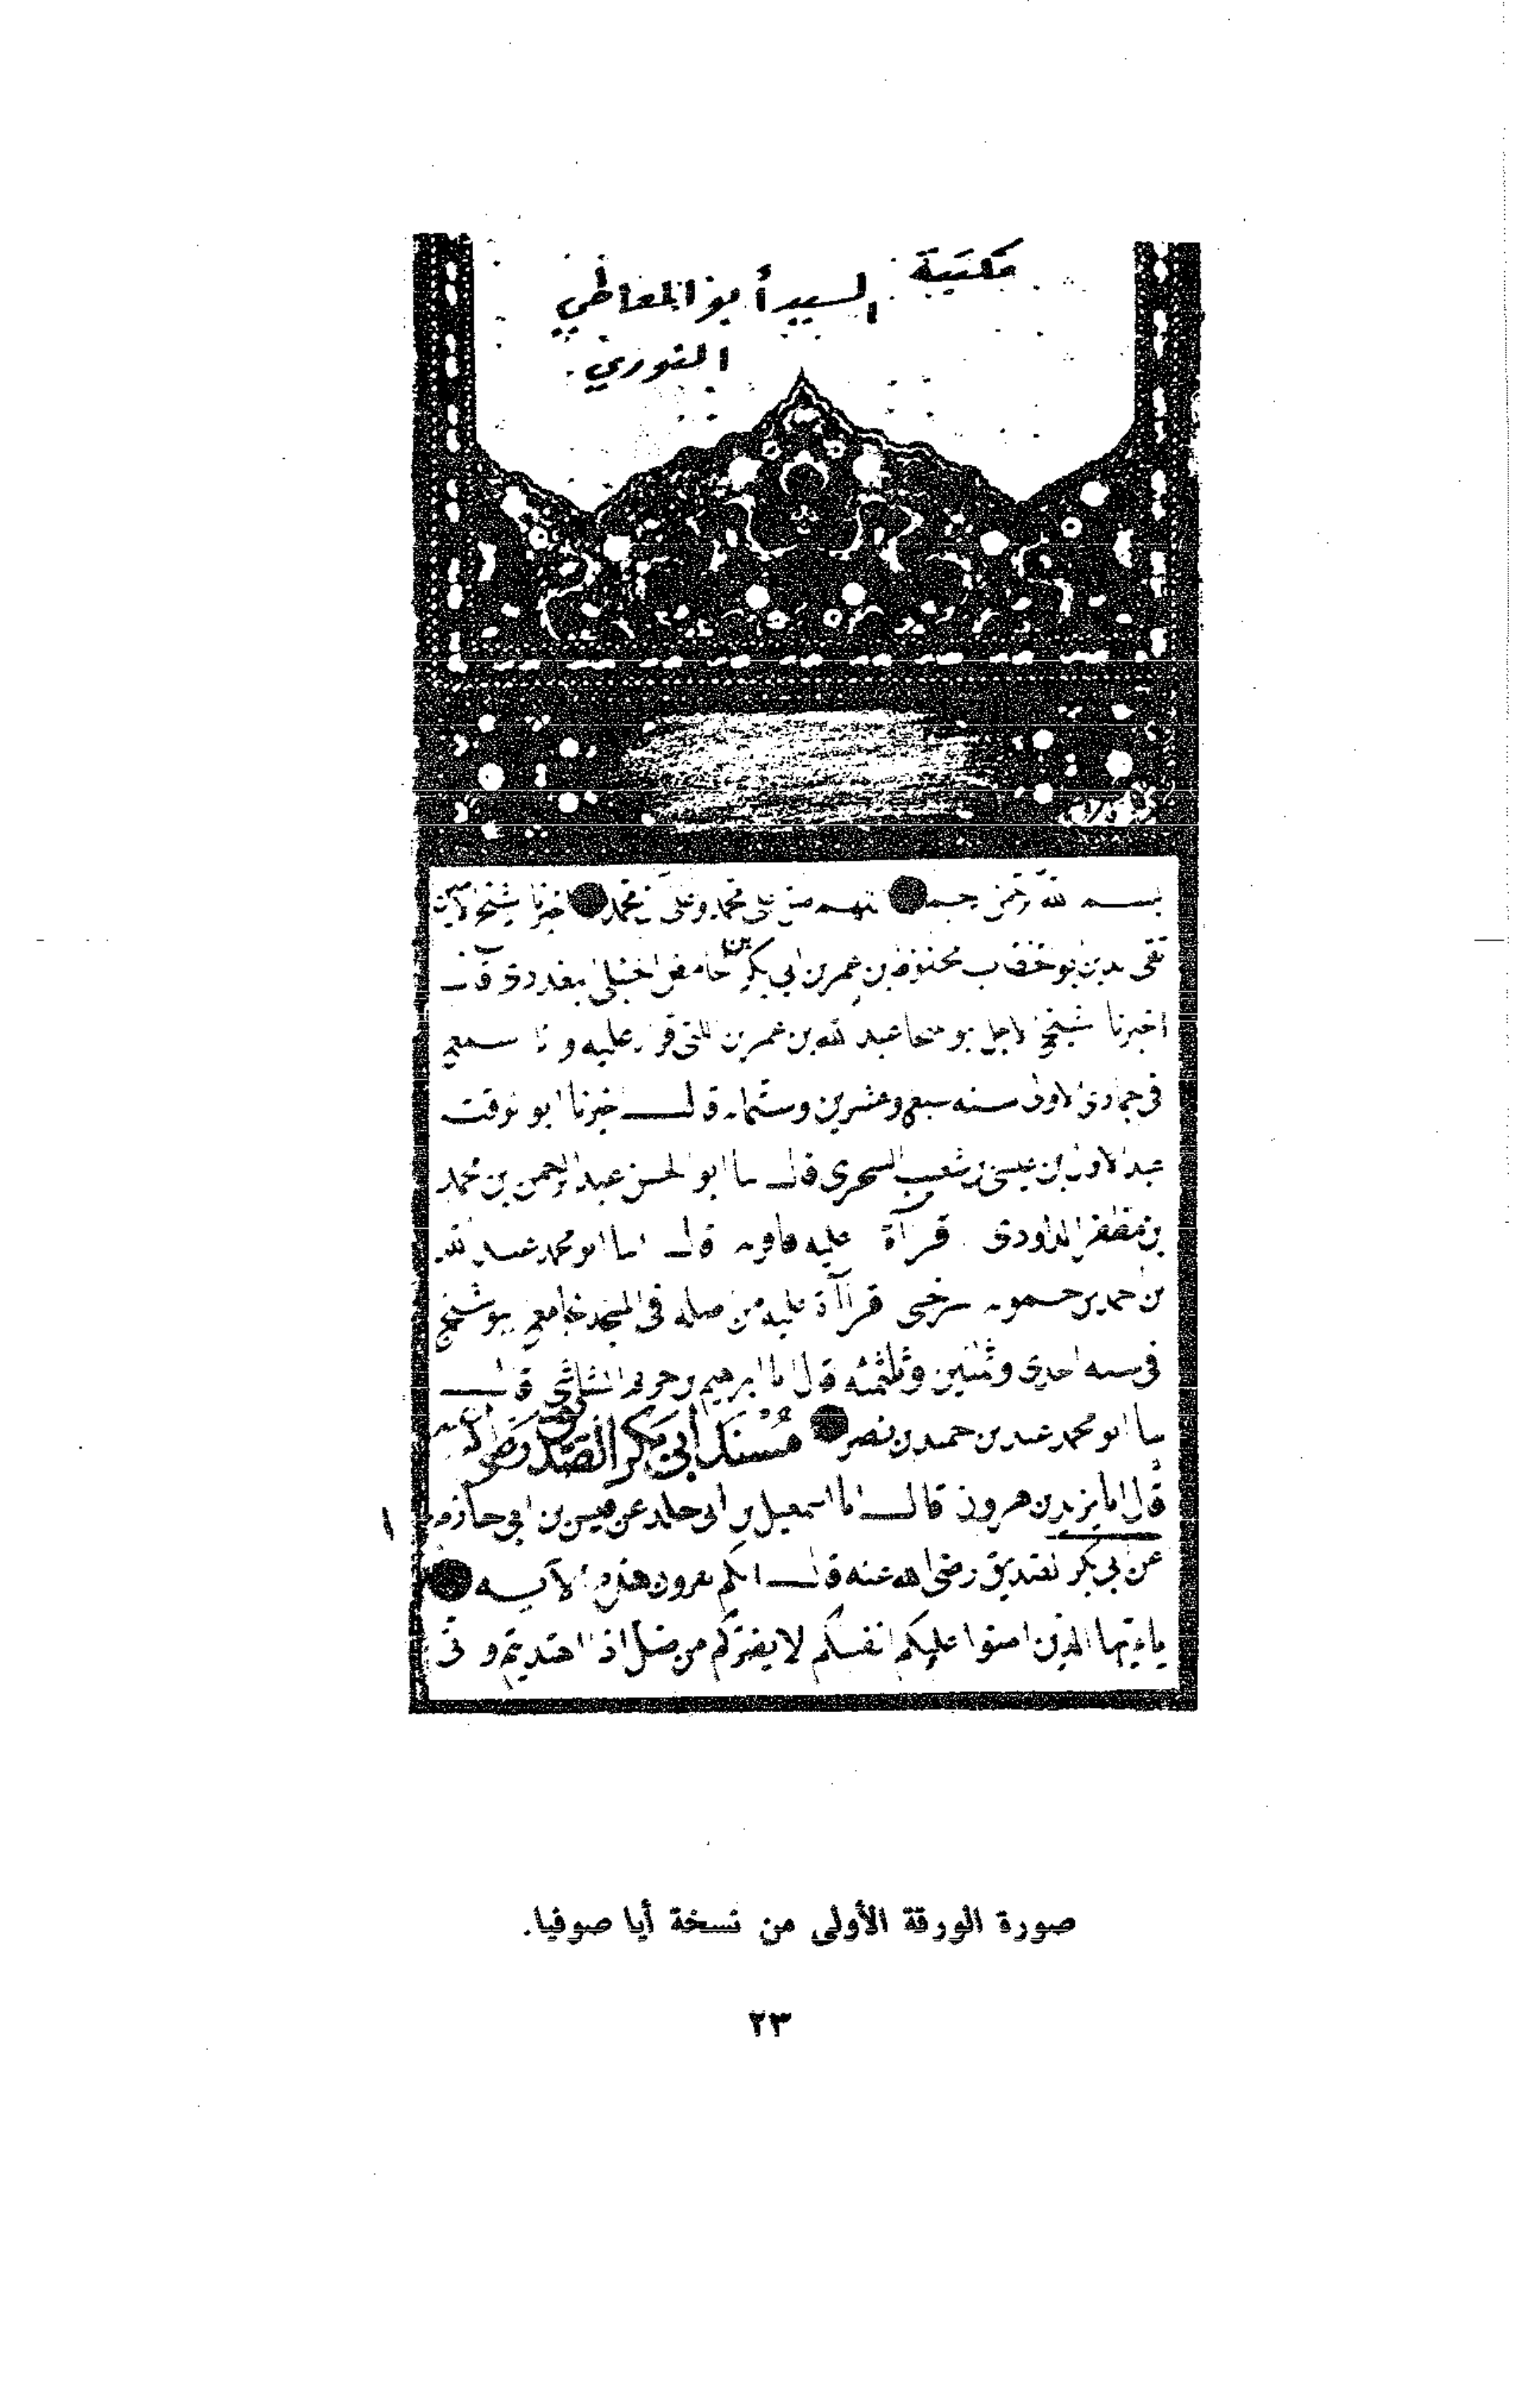 مكتبة السيد أبو المعاطي
النوري.
بسم الله الرحمن الرحيم اللهم صل على محمد وعلى محمد اخبرنا الشيخ
تقى الدين ابو الخطاب محفوظ بن عمر بن ابى بكر بن الحامض الحنبلى البغدادى قال
اخبرنا الشيخ الاجل ابو المنجا عبد الله بن عمر بن اللتى قرا عليه وانا اسمع
فى جمادى الاولى سنه سبع وعشرين وستمايه قال اخبرنا ابو الوقت
عبد الاول بن عيسى بن شعيب السجزى قال انا ابو الحسن عبد الرحمن بن محمد
بن مظفر الداودى قرآة عليه فاقر به قال انا ابو محمد عبد الله
بن احمد بن حمويه السرخسى قرآة عليه من اصله فى المسجد الجامع ببوشنج
فى سنه احدى وثمنين وثلثمئه قال انا ابرهيم بن خريم الشاشى قال
انا ابو محمد عبد بن حميد بن نصر مُسْنَد أبي بَكر الصديق رضى الله عنه
قال انا يزيد بن هرون قال انا اسمعيل بن ابى خلد عن قيس بن ابى حازم
١
عن ابى بكر الصديق رضى الله عنه قال انكم تقرون هذه الآيه
ياءيها الذين امنوا عليكم انفسكم لا يضركم من ضل اذا اهتديتم
صورة الورقة الأولى من نسخة أيا صوفيا.
٢٣